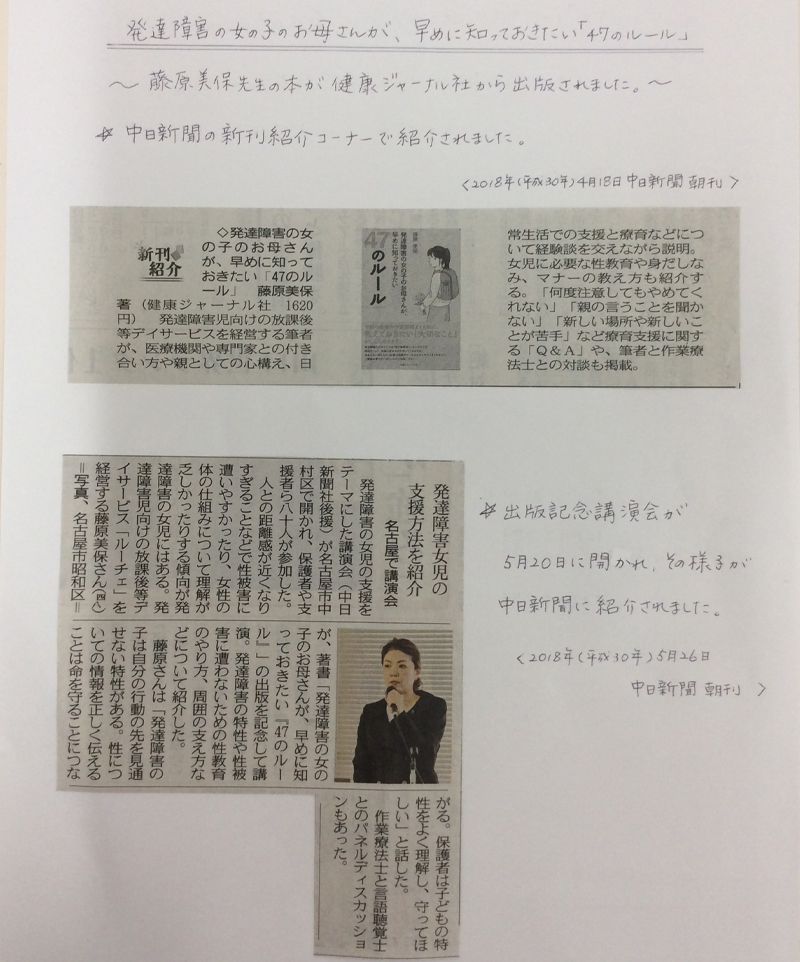 発達障害の女の子のお母さんが、早めに知っておきたい「47のルール」
〜 藤原美保先生の本が健康ジャーナル社から出版されました。〜
☆ 中日新聞の新刊紹介コーナーで紹介されました。
＜2018年(平成30年)4月18日 中日新聞 朝刊＞
新刊
紹介
◇発達障害の女
の子のお母さん
が、早めに知って
おきたい「47のル
ール」 藤原美保
著（健康ジャーナル社 1620
円） 発達障害児向けの放課後
等デイサービスを経営する筆者
が、医療機関や専門家との付き
合い方や親としての心構え、日
47
のルール
発達障害の女の子のお母さんが、
早めに知っておきたい
藤原美保
常生活での支援と療育などにつ
いて経験談を交えながら説明。
女児に必要な性教育や身だしな
み、マナーの教え方も紹介す
る。「何度注意してもやめてく
れない」「親の言うことを聞か
ない」「新しい場所や新しいこ
とが苦手」など療育支援に関す
る「Q＆A」や、筆者と作業療
法士との対談も掲載。
発達障害女児の
支援方法を紹介
名古屋で講演会
発達障害の女児の支援を
テーマにした講演会（中日
新聞社後援）が名古屋市中
村区で開かれ、保護者や支
援者ら八十人が参加した。
人との距離感が近くなり
すぎることなどで性被害に
遭いやすかったり、女性の
体の仕組みについて理解が
乏しかったりする傾向が発
達障害の女児にはある。発
達障害児向けの放課後等デ
イサービス「ルーチェ」を
経営する藤原美保さん（四八）
＝写真、名古屋市昭和区＝
が、著書「発達障害の女の
子のお母さんが、早めに知
っておきたい『47のルー
ル』」の出版を記念して講
演。発達障害の特性や性被
害に遭わないための性教育
のやり方、周囲の支え方な
どについて紹介した。
藤原さんは「発達障害の
子は自分の行動の先を見通
せない特性がある。性につ
いての情報を正しく伝える
ことは命を守ることにつな
がる。保護者は子どもの特
性をよく理解し、守ってほ
しい」と話した。
作業療法士と言語聴覚士
とのパネルディスカッショ
ンもあった。
☆ 出版記念講演会が
5月20日に開かれ、その様子が
中日新聞に紹介されました。
＜2018年(平成30年)5月26日
中日新聞 朝刊＞